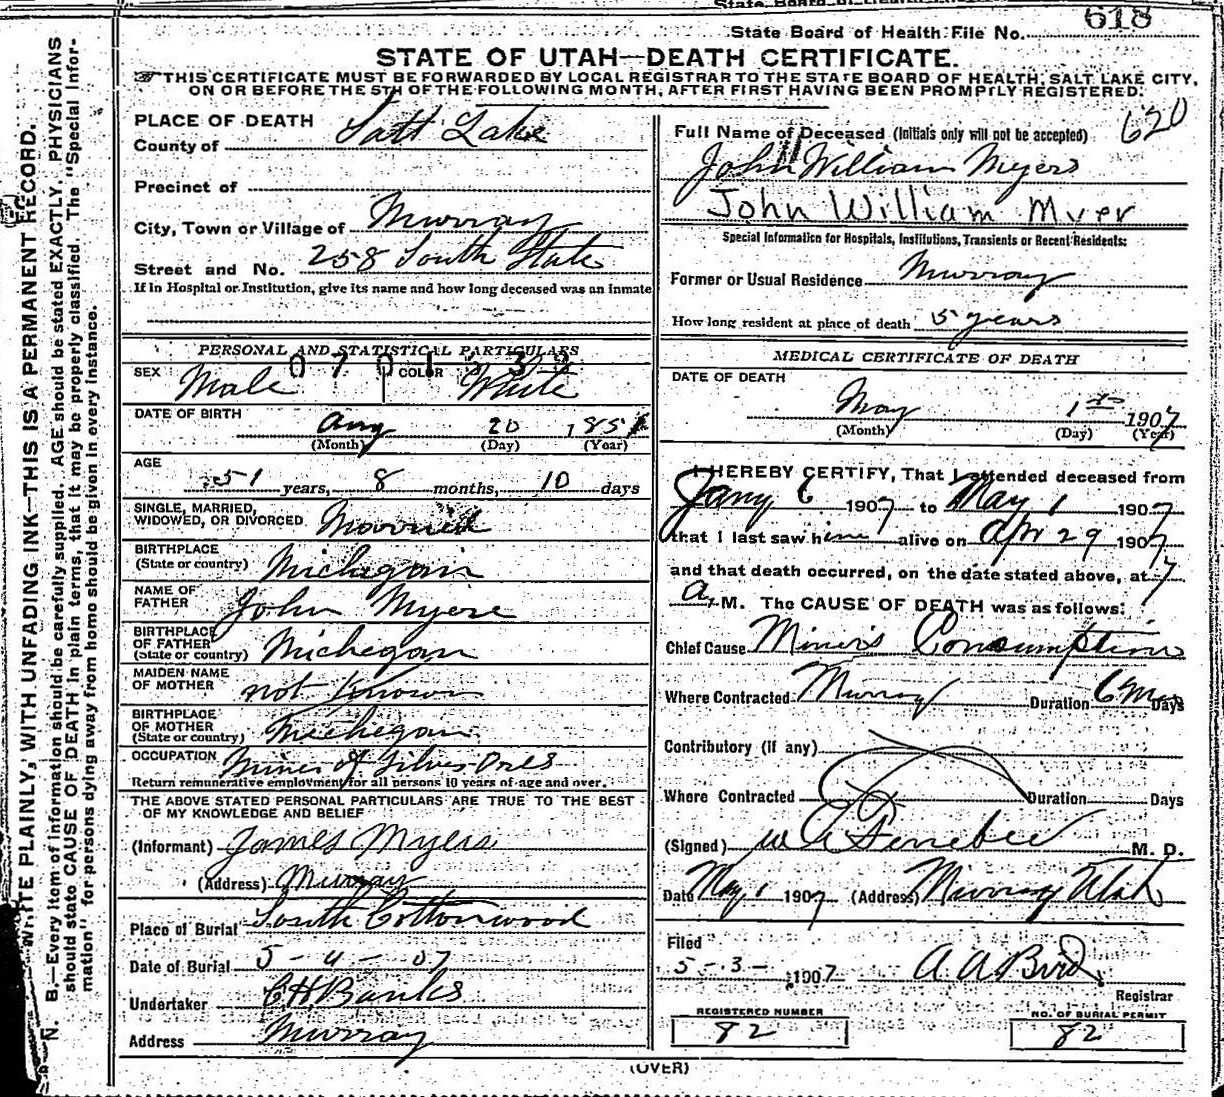 618
State Board of Health File No.
STATE OF UTAH—DEATH CERTIFICATE.
THIS CERTIFICATE MUST BE FORWARDED BY LOCAL REGISTRAR TO THE STATE BOARD OF HEALTH, SALT LAKE CITY,
ON OR BEFORE THE 5TH OF THE FOLLOWING MONTH, AFTER FIRST HAVING BEEN PROMPTLY REGISTERED.
N. B.—Every item of information should be carefully supplied. AGE should be stated EXACTLY. PHYSICIANS
should state CAUSE OF DEATH in plain terms, that it may be properly classified. The "Special Infor-
mation" for persons dying away from home should be given in every instance.
WRITE PLAINLY, WITH UNFADING INK—THIS IS A PERMANENT RECORD.
PLACE OF DEATH
County of Salt Lake
Precinct of
City, Town or Village of Murray
Street and No. 258 South State
If in Hospital or Institution, give its name and how long deceased was an inmate
PERSONAL AND STATISTICAL PARTICULARS
SEX Male COLOR White
DATE OF BIRTH Aug 20 185
(Month) (Day) (Year)
AGE
51 years, 8 months, 10 days
SINGLE, MARRIED,
WIDOWED, OR DIVORCED Married
BIRTHPLACE
(State or country) Michegain
NAME OF
FATHER John Myers
BIRTHPLACE
OF FATHER
(State or country) Michegan
MAIDEN NAME
OF MOTHER not known
BIRTHPLACE
OF MOTHER
(State or country) Michegan
OCCUPATION Miner of Silver Ores
Return remunerative employment for all persons 10 years of age and over.
THE ABOVE STATED PERSONAL PARTICULARS ARE TRUE TO THE BEST
OF MY KNOWLEDGE AND BELIEF
(Informant) James Myers
(Address) Murray
Place of Burial South Cottonwood
Date of Burial 5-4-07
Undertaker C H Banks
Address Murray
Full Name of Deceased (Initials only will not be accepted) 620
John William Myers
John William Myer
Special Information for Hospitals, Institutions, Transients or Recent Residents:
Former or Usual Residence Murray
How long resident at place of death 5 years
MEDICAL CERTIFICATE OF DEATH
DATE OF DEATH
May 1st 1907
(Month) (Day) (Year)
I HEREBY CERTIFY, That I attended deceased from
Jany 6 1907 to May 1 1907
that I last saw him alive on Apr 29 1907
and that death occurred, on the date stated above, at 7
A. M. The CAUSE OF DEATH was as follows:
Chief Cause Miners Consumption
Where Contracted Murray Duration 6 Mos Days
Contributory (if any)
Where Contracted Duration Days
(Signed) M. D.
Date May 1 1907 (Address) Murray Utah
Filed
5-3- 1907 A A Bird
Registrar
REGISTERED NUMBER
82
NO. OF BURIAL PERMIT
82
(OVER)